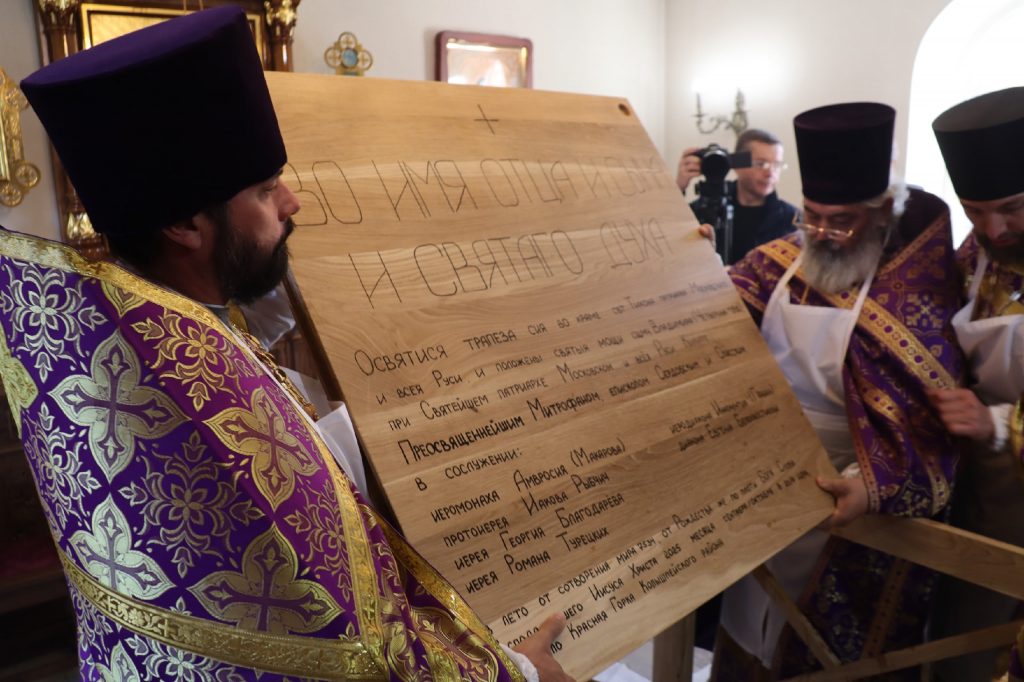 ВО ИМЯ ОТЦА И СЫНА
И СВЯТАГО ДУХА
ОСВЯТИСЯ ТРАПЕЗА СИЯ ВО ХРАМЕ СВТ. ТИХОНА ПАТРИАРХА МОСКОВСКОГО
И ВСЕЯ РУСИ И ПОЛОЖЕНЫ СВЯТЫЯ МОЩИ СЩМЧ.
ПРИ СВЯТЕЙШЕМ ПАТРИАРХЕ МОСКОВСКОМ И ВСЕЯ РУСИ КИРИЛЛЕ
ПРЕОСВЯЩЕННЕЙШИМ МИТРОФАНОМ ЕПИСКОПОМ СЕРДОБСКИМ И СПАССКИМ
В СОСЛУЖЕНИИ:
ИЕРОМОНАХА АМВРОСИЯ (МАКАРОВА) ИЕРОДИАКОНА
ПРОТОИЕРЕЯ ИАКОВА РЫБЧИН ДИАКОНА
ИЕРЕЯ ГЕОРГИЯ БЛАГОДАРЕВА
ИЕРЕЯ РОМАНА ТУРЕЦКИХ
ЛЕТО ОТ СОТВОРЕНИЯ МИРА 7534 ОТ РОЖДЕСТВА ЖЕ ПО ПЛОТИ БОГА СЛОВА
ИИСУСА ХРИСТА 2025 МЕСЯЦА В ДЕНЬ
КРАСНАЯ ГОРКА КОЛЫШЛЕЙСКОГО РАЙОНА